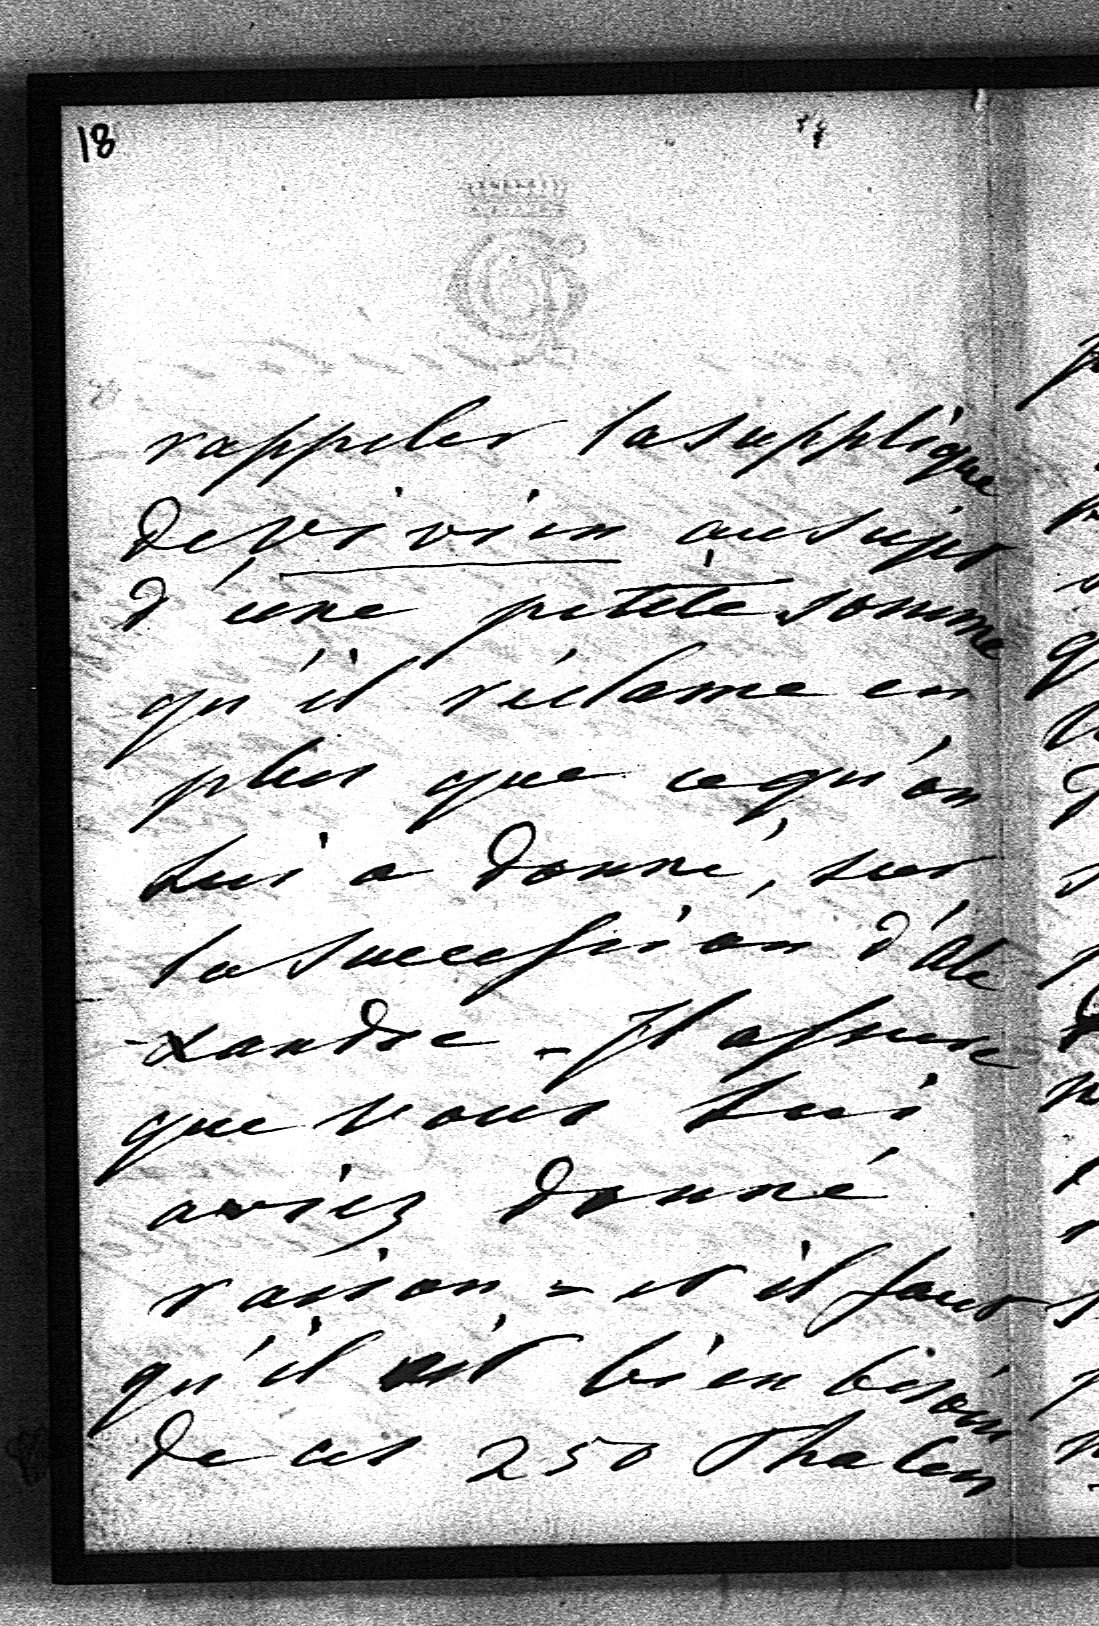 18
rappeler la supplique
de Vivien au sujet
d'une petite somme
qu'il réclame en
plus que ce qu'on
lui a donné, sur
la succession d'Ale
-xandre - Il assure
que vous lui
aviez donné
raison - et il faut
qu'il ait bien besoin
de ces 250 Thalers